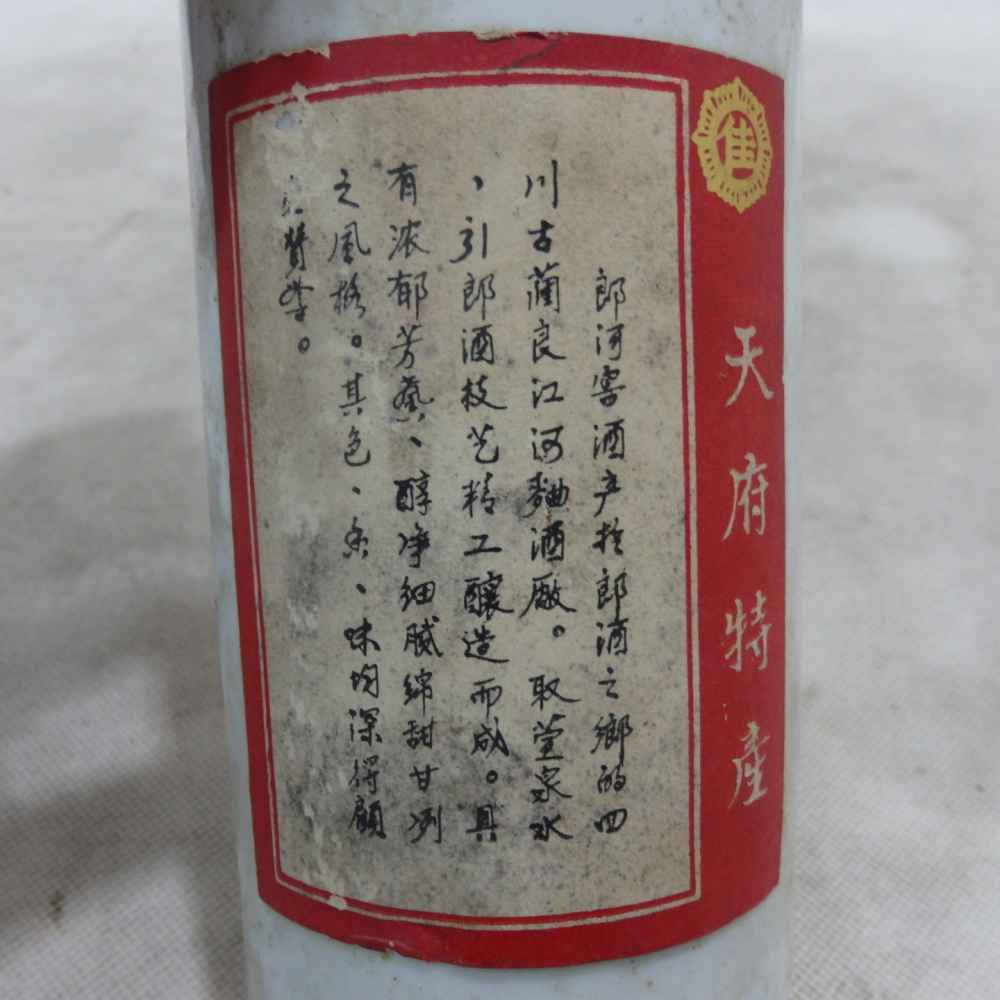 佳
天府特產
郎河窖酒产於郎酒之鄉的四
川古蔺良江河麯酒厰。取萱泉水
、引郎酒枝艺精工釀造而成。具
有浓郁芳、醇净细腻绵甜甘冽
之風格。其色、香、味均深得顧
赞誉。